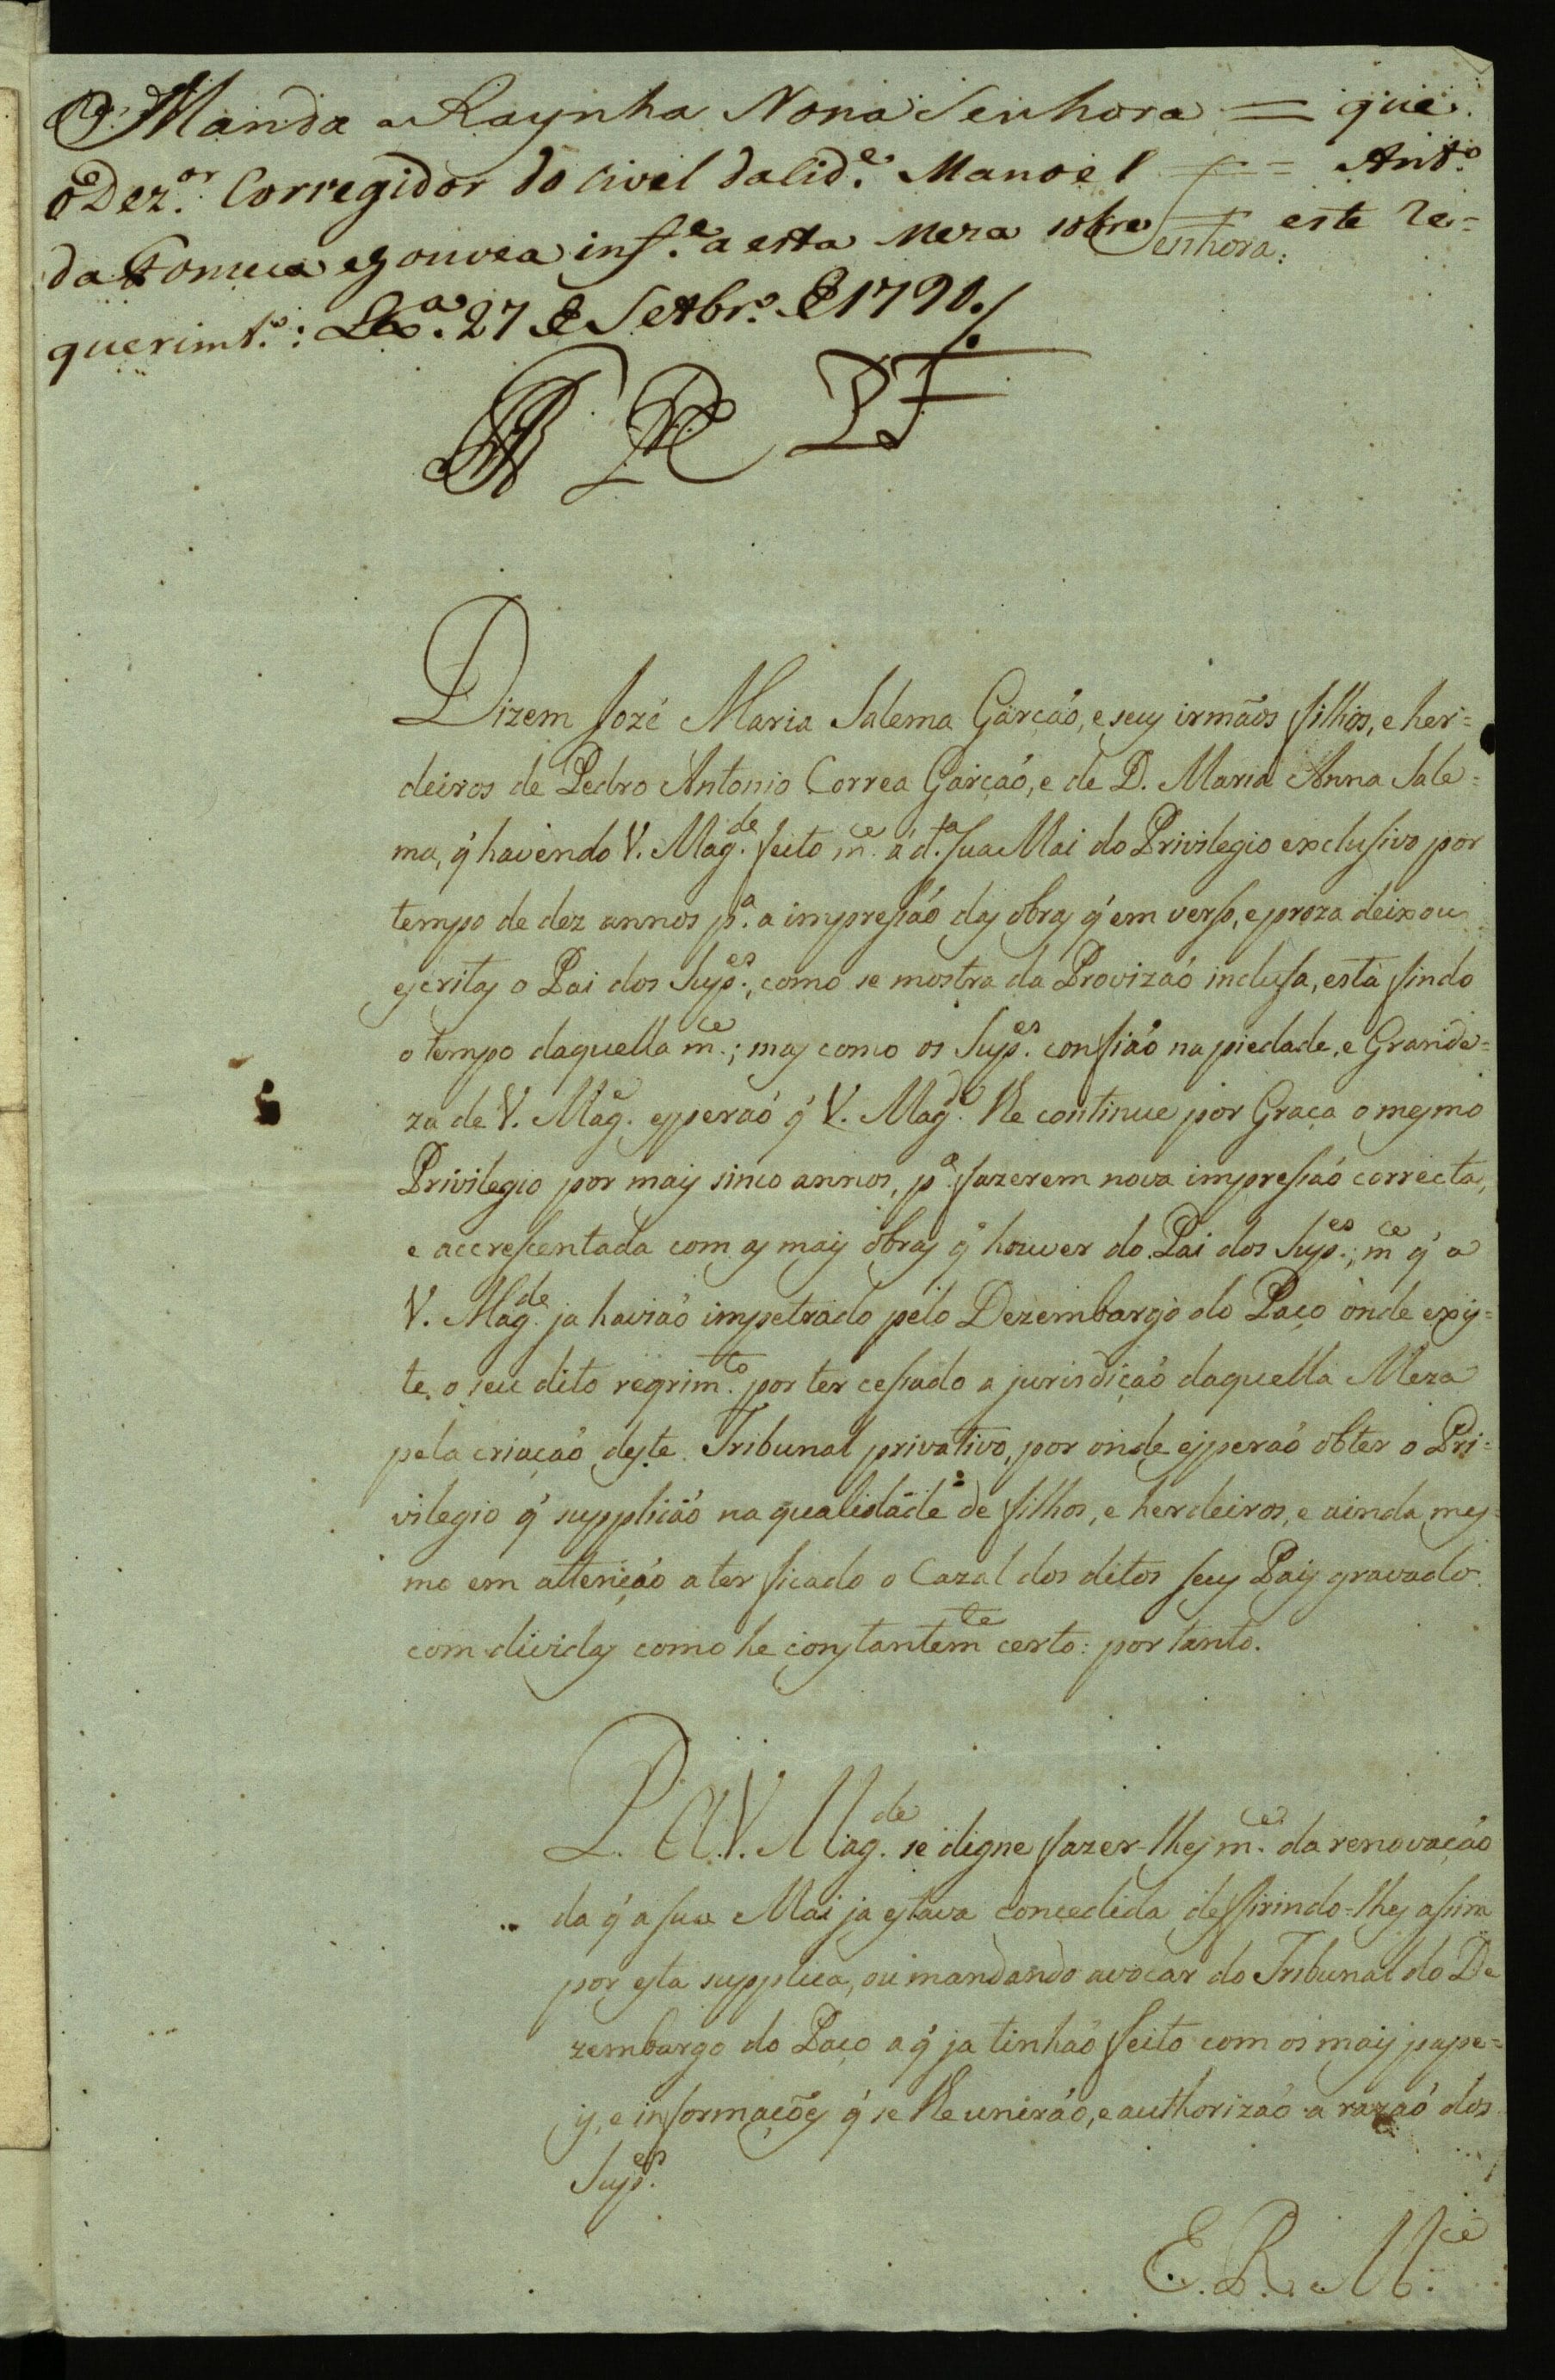 Manda a Raynha Nossa Senhora = que
o Dez.or Corregidor do Civel da Cid.e Manoel = Ant.o
da Fonseca e Gouvea inf.e a esta Meza sobre este Re=
Senhora.
querimt.o: Lx.a 27 de Setbr.o de 1790./
Dizem Jozé Maria Salema Garcáo, e seus irmãos filhos, e her=
deiros de Pedro Antonio Correa Garçaó, e de D. Maria Anna Sale=
ma, q' havendo V. Mag.de feito m.ce á d.ta sua Mai do Privilegio exclusivo por
tempo de dez annos p.a a impressaó das obras q' em verso, e proza deixou
escritas o Pai dos Sup.es, como se mostra da Provizaó inclusa, está findo
o tempo daquella m.ce; mas como os Sup.es confiaõ na piedade, e Grande=
za de V. Mag.e esperaó q' V. Mag.de lhe continue por Graça o mesmo
Privilegio por mais sinco annos, p.a fazerem nova impressaó correcta,
e accrescentada com as mais obras q' houver do Pai dos Sup.es; m.ce q' a
V. Mag.de ja haviaó impetrado pelo Dezembargo do Paço onde exis=
te o seu dito reqrim.to por ter cessado a jurisdiçaó daquella Meza
pela criaçaó deste Tribunal privativo, por onde esperaó obter o Pri=
vilegio q' supplicaó na qualidade de filhos, e herdeiros, e ainda mes=
mo em attençáo a ter ficado o Cazal dos ditos seus Pais gravado
com dividas como he constantem.te certo: por tanto.
P. A V. Mag.de se digne fazer-lhes m.ce da renovaçáo
da q' a sua Mai ja estava concedida defirindo=lhes assim
por esta supplica, ou mandando avocar do Tribunal do De
zembargo do Paço a q' ja tinhaó feito com os mais pape=
is, e informaçoẽs q' se lhe uniráo, e authorizaó a razaó dos
Sup.es
E. R. M.ce